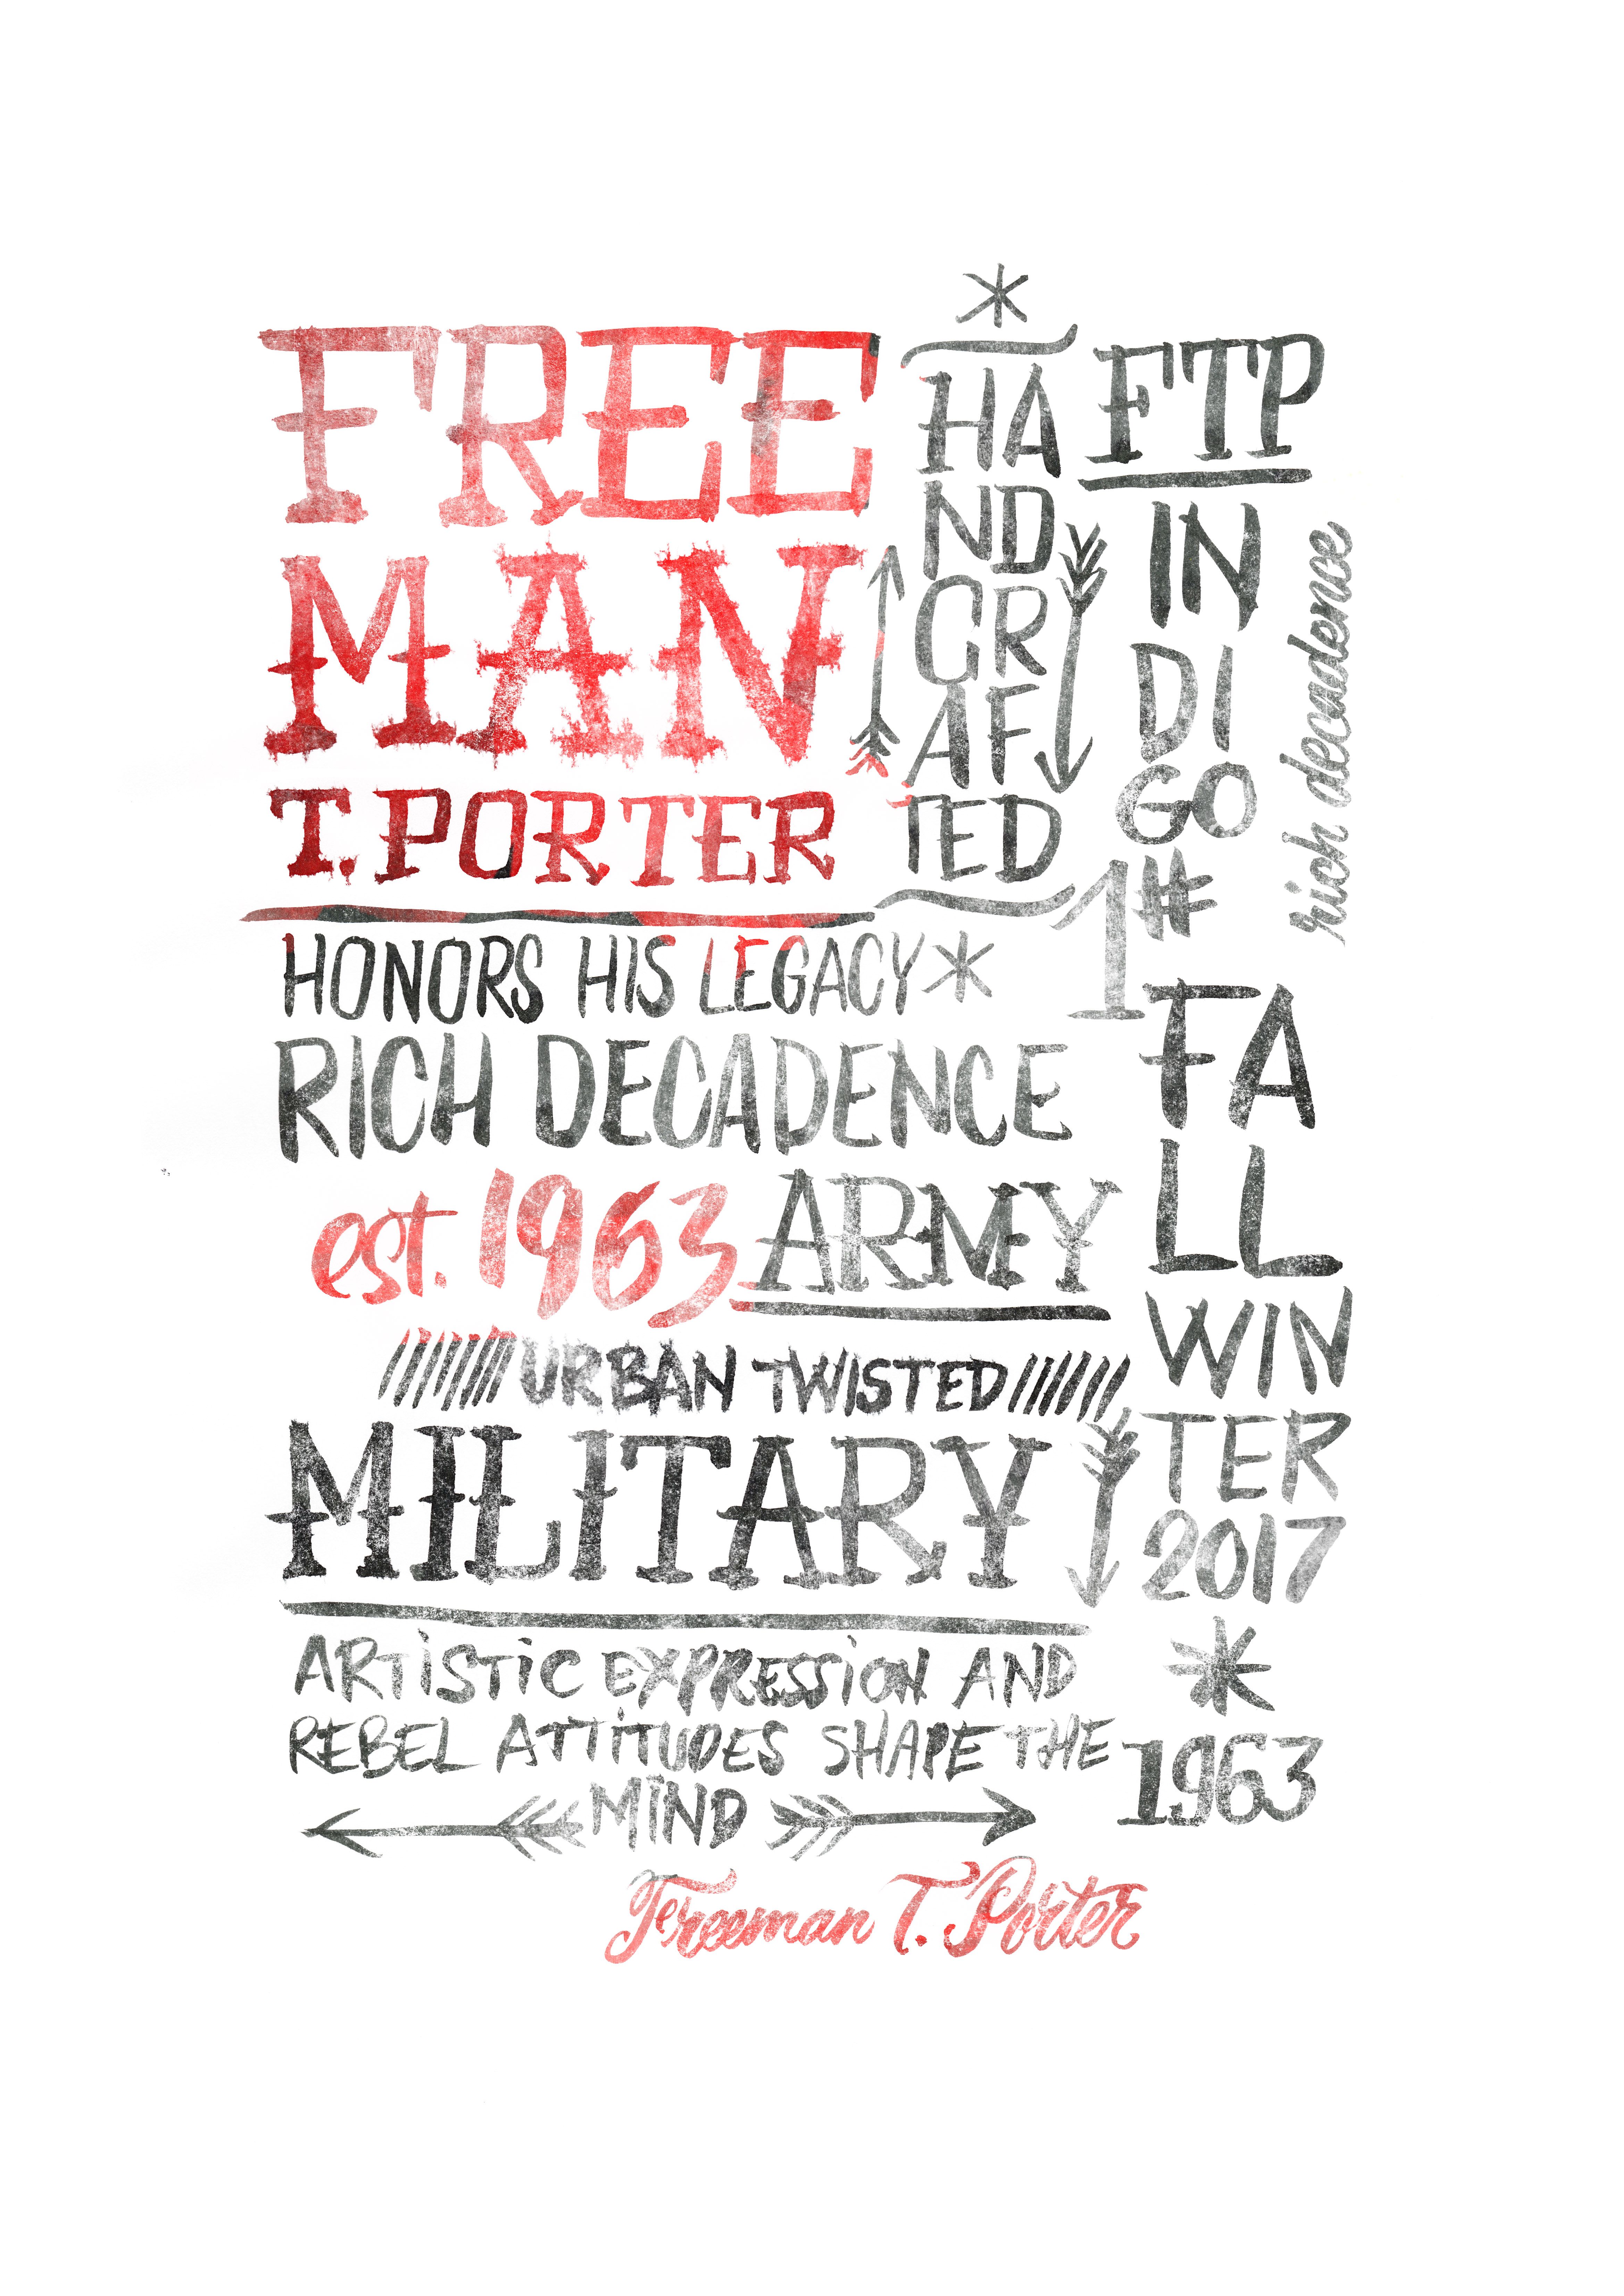 FREE
MAN
T. PORTER
HONORS HIS LEGACY*
RICH DECADENCE
est. 1963 ARMY
URBAN TWISTED
MILITARY
ARTISTIC EXPRESSION AND
REBEL ATTITUDES SHAPE THE
MIND
Freeman T. Porter
*
HA
ND
CR
AF
TED
FTP
IN
DI
GO
1#
FA
LL
WIN
TER
2017
*
1963
rich decadence